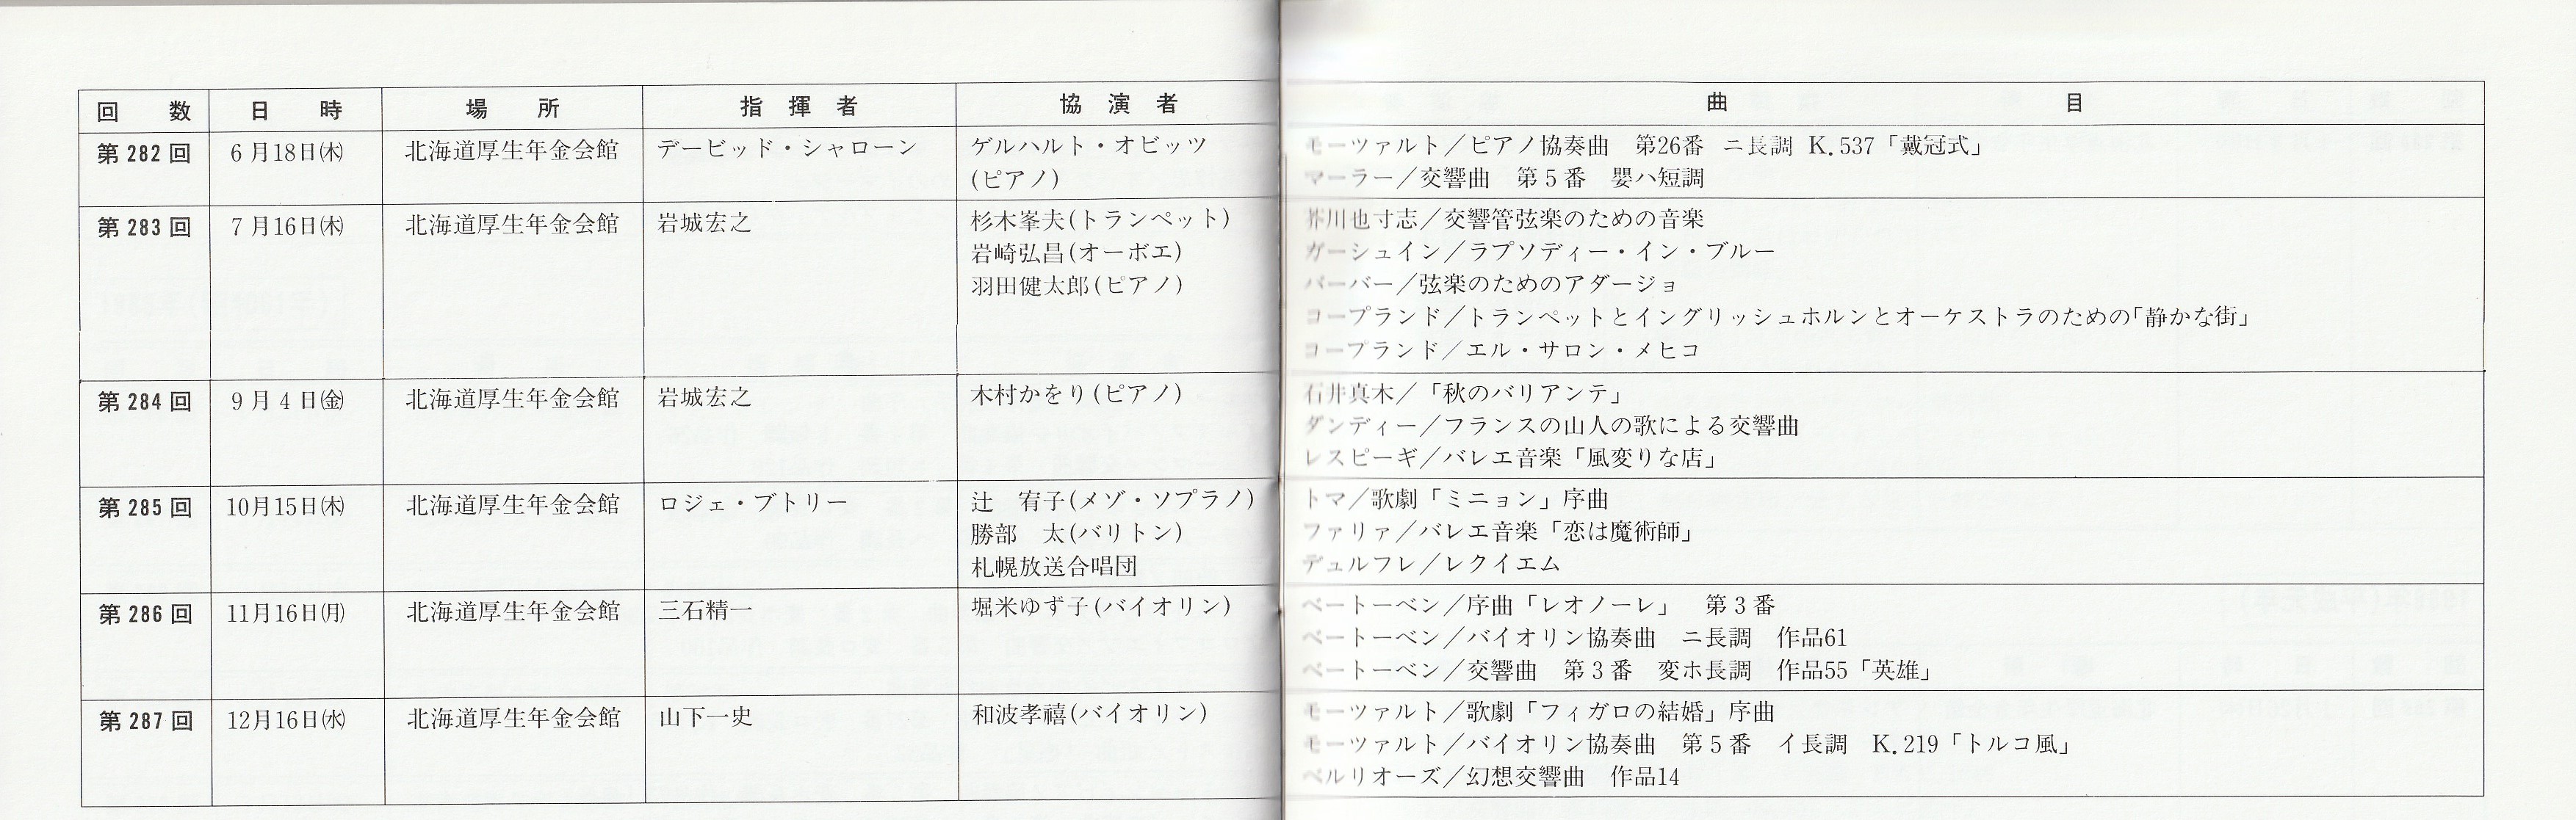 回 数 日 時 場 所 指 揮 者 協 演 者 曲 目
第282回 6月18日㈭ 北海道厚生年金会館 デービッド・シャローン ゲルハルト・オビッツ モーツァルト／ピアノ協奏曲 第26番 ニ長調 K.537「戴冠式」
(ピアノ) マーラー／交響曲 第5番 嬰ハ短調
第283回 7月16日㈭ 北海道厚生年金会館 岩城宏之 杉木峯夫(トランペット) 芥川也寸志／交響管弦楽のための音楽
岩崎弘昌(オーボエ) ガーシュイン／ラプソディー・イン・ブルー
羽田健太郎(ピアノ) バーバー／弦楽のためのアダージョ
コープランド／トランペットとイングリッシュホルンとオーケストラのための「静かな街」
コープランド／エル・サロン・メヒコ
第284回 9月4日㈮ 北海道厚生年金会館 岩城宏之 木村かをり(ピアノ) 石井真木／「秋のバリアンテ」
ダンディー／フランスの山人の歌による交響曲
レスピーギ／バレエ音楽「風変りな店」
第285回 10月15日㈭ 北海道厚生年金会館 ロジェ・ブトリー 辻 宥子(メゾ・ソプラノ) トマ／歌劇「ミニョン」序曲
勝部 太(バリトン) ファリァ／バレエ音楽「恋は魔術師」
札幌放送合唱団 デュルフレ／レクイエム
第286回 11月16日㈪ 北海道厚生年金会館 三石精一 堀米ゆず子(バイオリン) ベートーベン／序曲「レオノーレ」 第3番
ベートーベン／バイオリン協奏曲 ニ長調 作品61
ベートーベン／交響曲 第3番 変ホ長調 作品55「英雄」
第287回 12月16日㈬ 北海道厚生年金会館 山下一史 和波孝禧(バイオリン) モーツァルト／歌劇「フィガロの結婚」序曲
モーツァルト／バイオリン協奏曲 第5番 イ長調 K.219「トルコ風」
ベルリオーズ／幻想交響曲 作品14